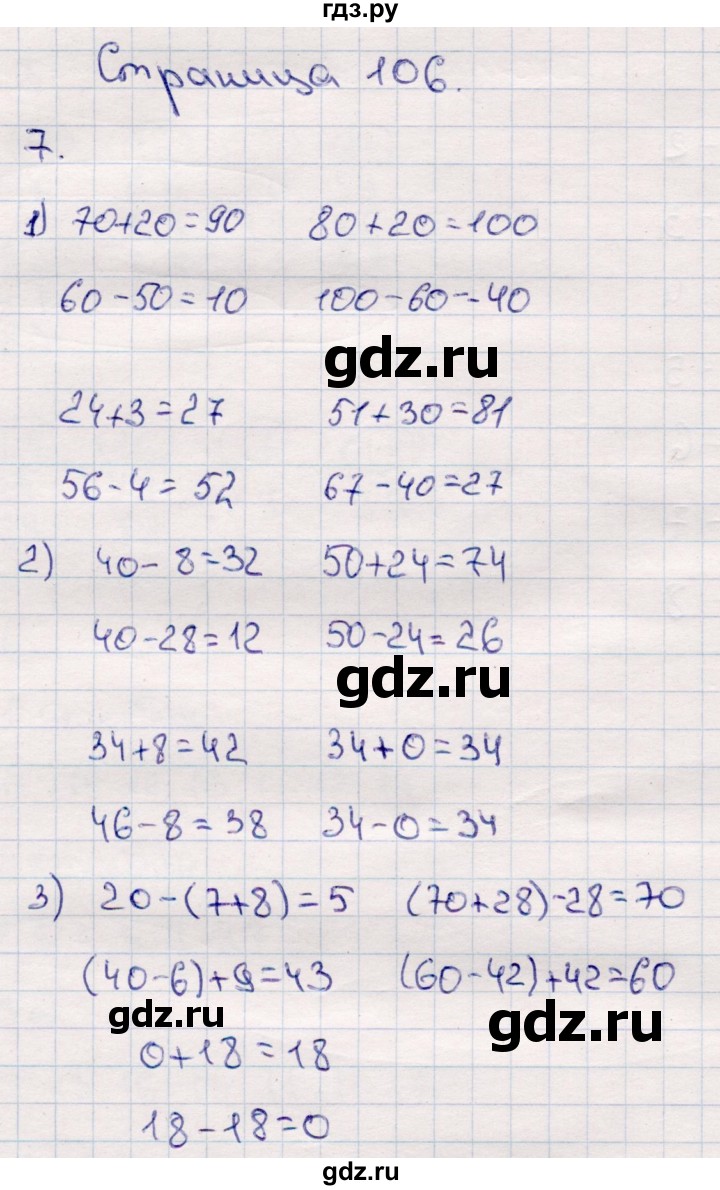 гдз.ру
Страница 106.
7.
1) 70+20=90 80+20=100
60-50=10 100-60=40
gdz.ru
24+3=27 51+30=81
56-4=52 67-40=27
2) 40-8=32 50+24=74
40-28=12 50-24=26
gdz.ru
34+8=42 34+0=34
46-8=38 34-0=34
3) 20-(7+8)=5 (70+28)-28=70
(40-6)+9=43 (60-42)+42=60
gdz.ru gdz.ru
0+18=18
18-18=0
gdz.ru